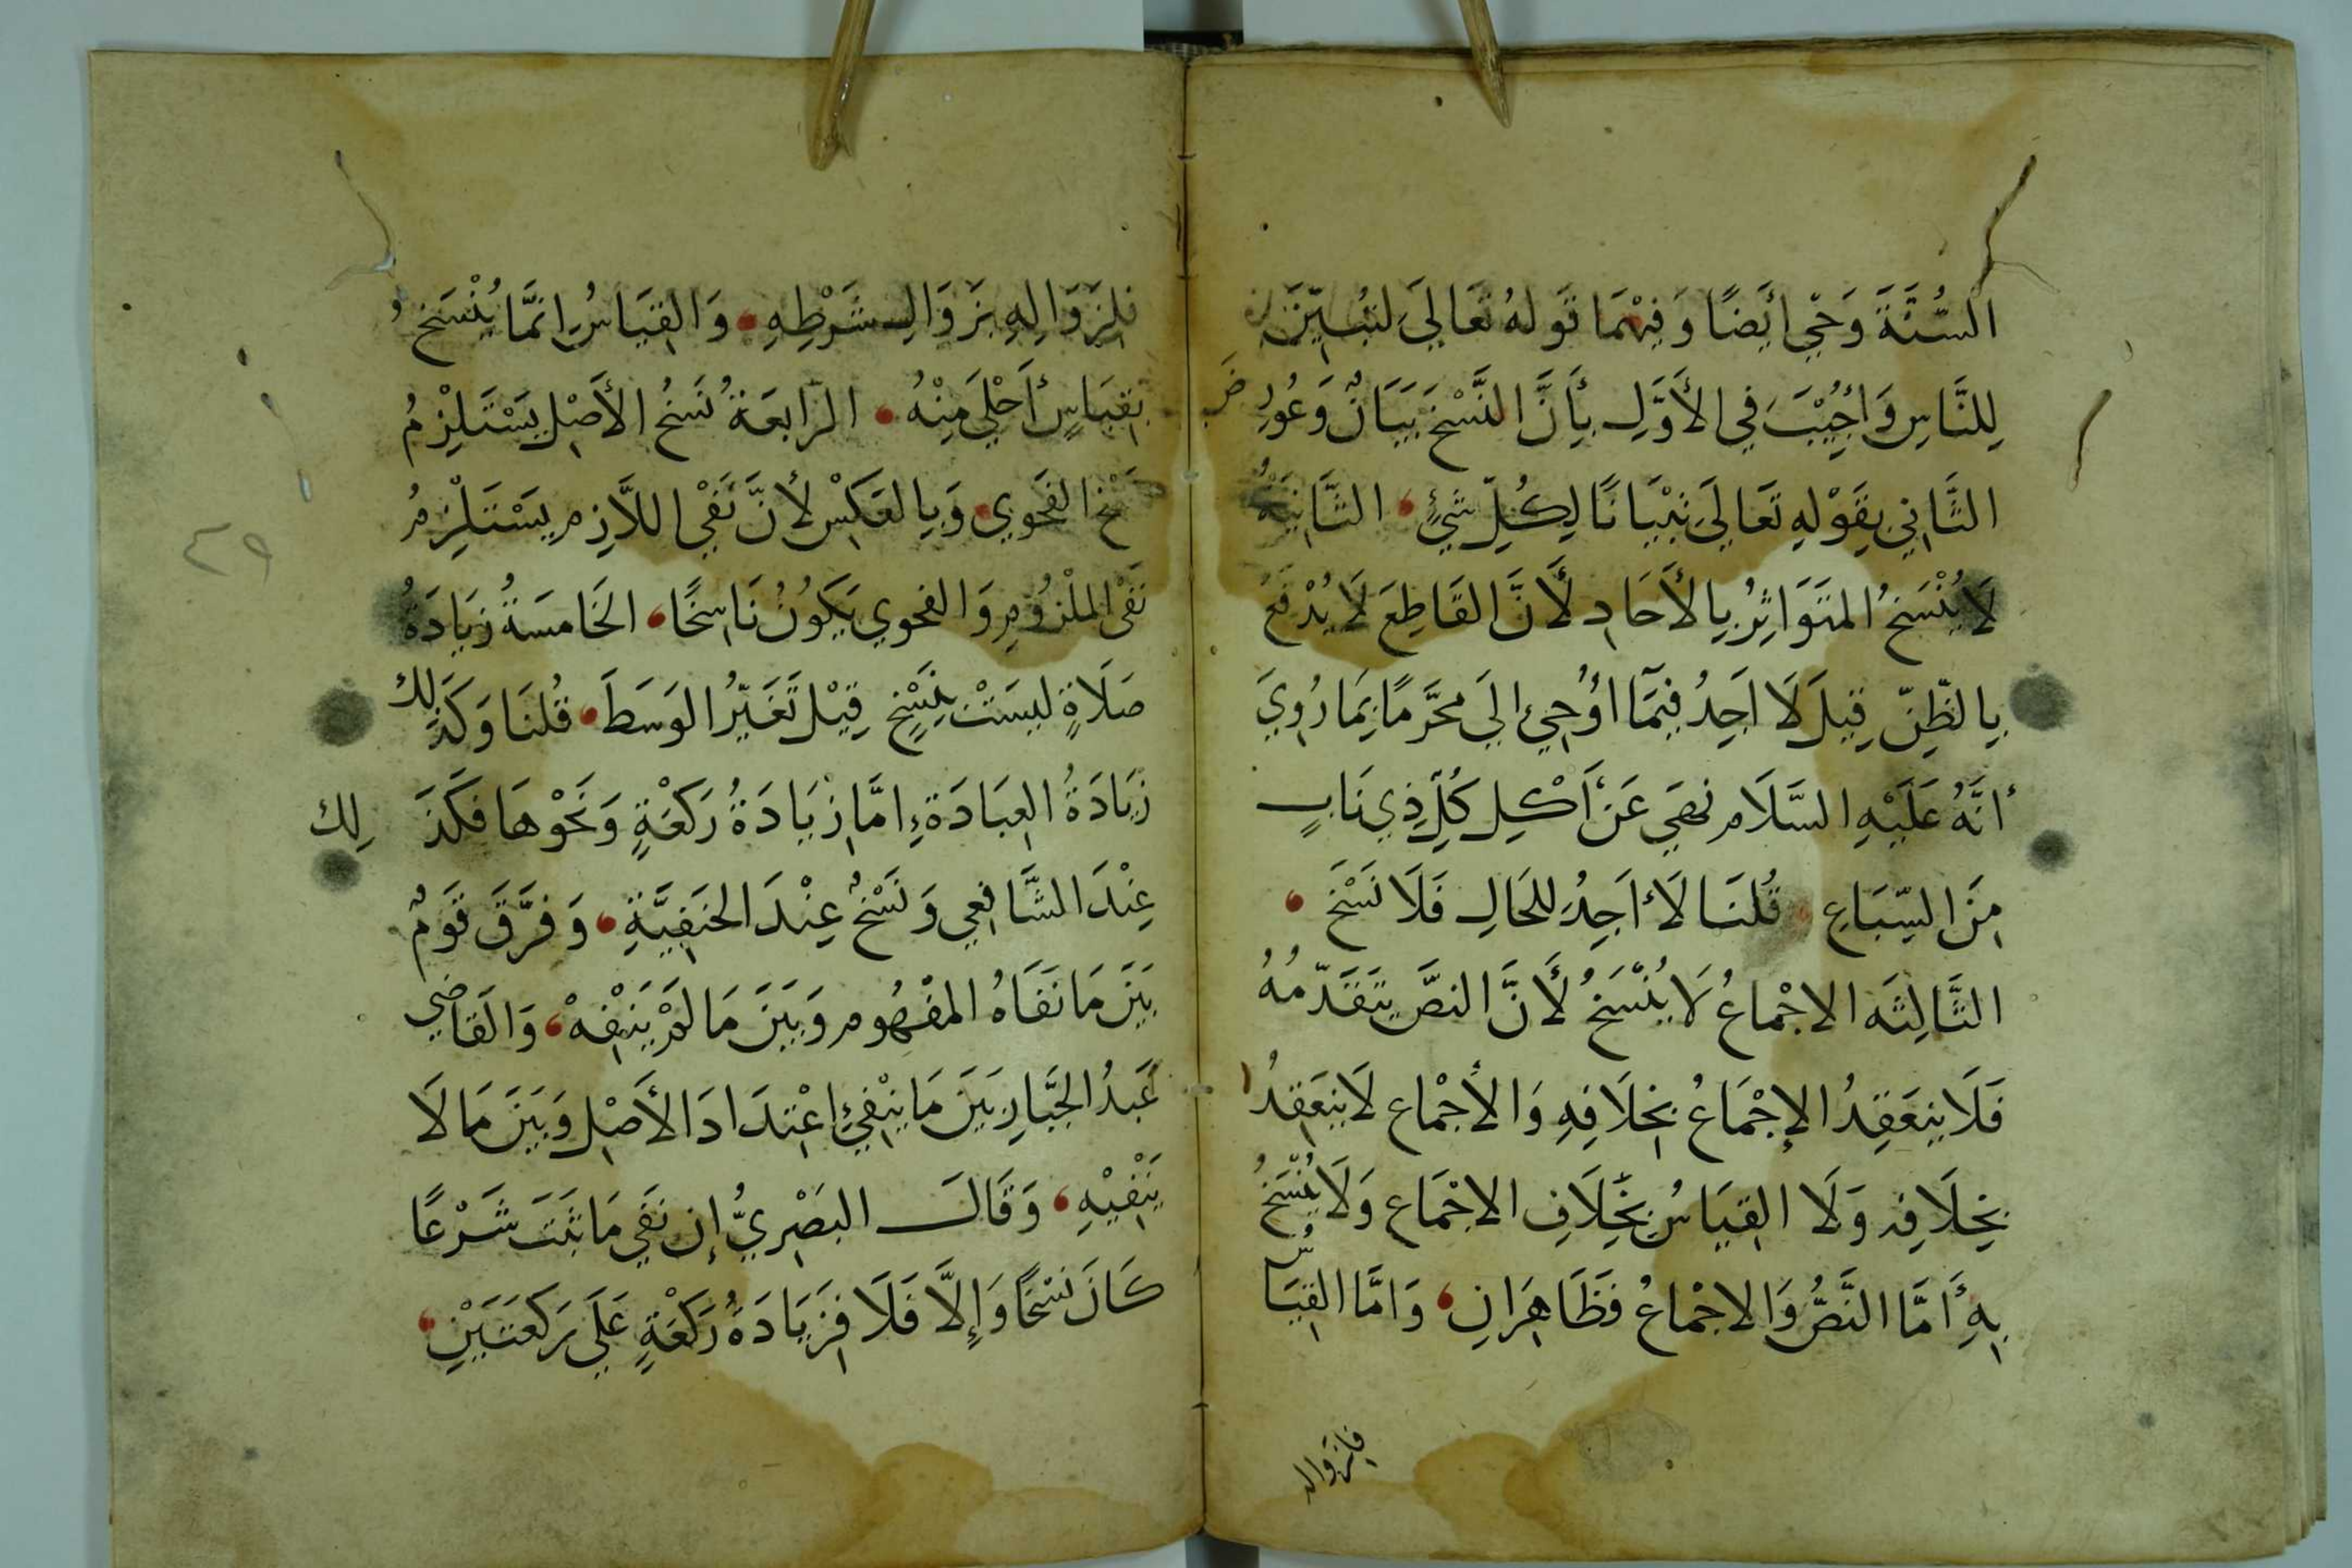 السُّنَّةَ وَحْيٌ أَيضًا وَفِيْهِمَا قَولهُ تَعَالَى لتُبَيِّنَ
لِلنَّاسِ وَاُجِيْبَ فِي الأَوَّلِ بِأَنَّ النَّسْخَ بَيَانٌ وَعُورِضَ
الثَّانِي بِقَوْلِهِ تَعَالَى تِبْيَانًا لِكُلِّ شَيْءٍ الثَّانِيَةُ
لَا يُنْسَخُ المتَوَاتِرُ بِالأَحَادِ لأَنَّ القَاطِعَ لَا يُدْفَعُ
بِالظَّنِّ قِيلَ لَا اَجِدُ فِيمَآ اُوحِيَ اِلَى مُحَرَّمًا بِمَا رُوِيَ
أنَّهُ عَلَيْهِ السَّلَام نَهَى عَنْ أَكْلِ كُلِّ ذِي نَابٍ
مِنَ السِّبَاعِ قُلنَا لَا أَجِدُ للحَالِ فَلَا نَسْخَ
الثَّالِثَه الاجْمَاعُ لَا يُنْسَخُ لأَنَّ النصَّ يَتَقَدَّمُهُ
فَلَا يَنعَقِدُ الإِجْمَاعُ بِخِلَافِهِ وَالأجْمَاع لَا يَنعَقِدُ
بِخِلَافِه وَلَا القِيَاسُ بِخِلَافِ الاجْمَاع وَلَا يُنْسَخُ
بِهِ أَمَّا النَّصُّ وَالاجْمَاعُ فَظَاهِرَانِ وَامَّا القِيَاسُ
فلِزوَاله
فلِزَوَالِهِ بزَوَالِ شَرْطِهِ وَالقِيَاسُ اِنَّمَا يُنْسَخُ
بِقِيَاسٍ أَجْلَى مِنْهُ الرَّابعَةُ نَسخُ الأَصْلِ يَسْتَلْزِمُ
نَسْخَ الفَحْوي وَبِالعَكسِ لأَنَّ نَفْيَ اللَّازِمِ يَسْتَلْزِمُ
نَفْيَ المَلْزُومِ وَالفحوي يَكُونُ نَاسِخًا الخَامسَةُ زيَادَةُ
صَلَاةٍ ليسَتْ بِنَسْخٍ قِيْلَ تَغَيّرُ الوَسَطَ قُلنَا وَكَذَلِكَ
زيَادَةُ العِبَادَةِ اِمَّا زيَادَةُ رَكعَةٍ وَنَحْوهَا فكَذَ لِكَ
عِنْدَ الشَّافِعي وَنَسْخٌ عِنْدَ الحَنَفِيَّةِ وَفرَّقَ قَومٌ
بَيْنَ مَا نَفَاهُ المفْهُوم وَبَيْنَ مَا لَمْ يَنْفِهْ وَالقَاضِي
عَبدُ الجَبَّارِ بَيْنَ مَا يَنْفِي اعْتِدَادَ الأَصْلِ وَبَيْنَ مَا لَا
يَنْفِيْهِ وَقَالَ البَصْرِيُّ إن نَفَي مَا ثَبَتَ شَرْعًا
كَانَ نَسْخًا وَإِلَّا فَلَا فَزِيَادَةُ رَكعَةٍ عَلَى رَكعَتَيْنِ
٤٩